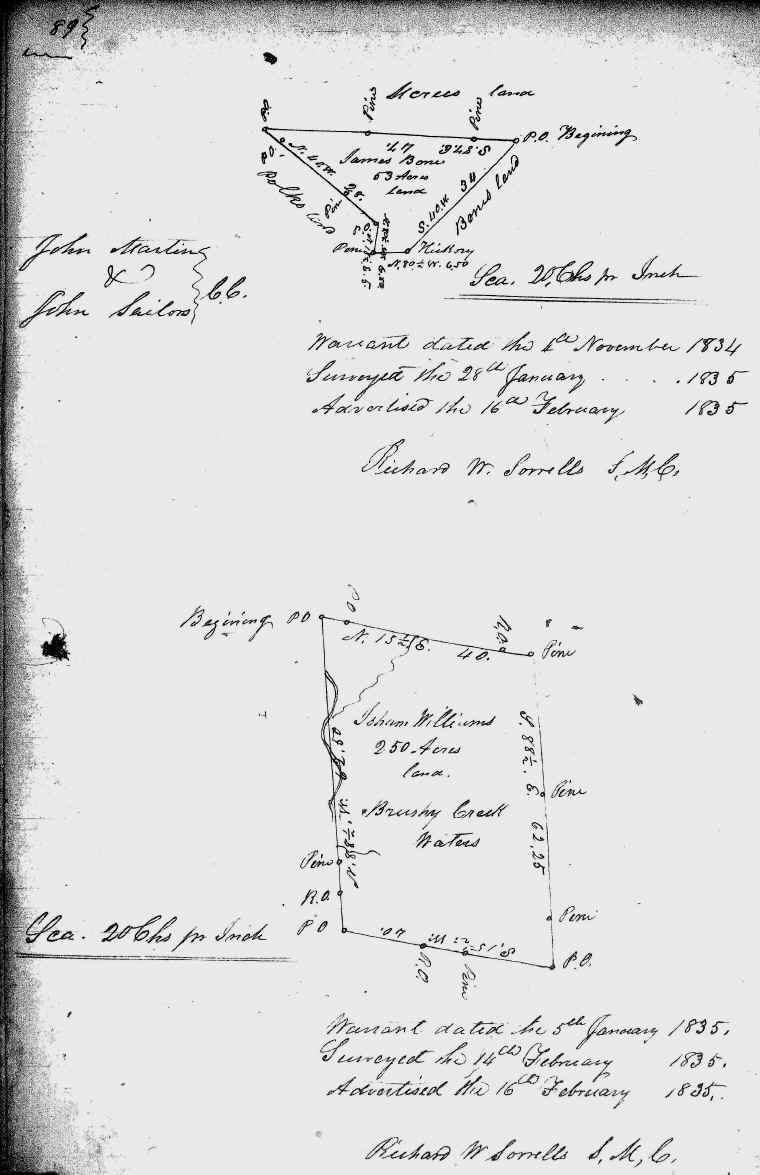 89
McRees land
Pine
Pine
P.O. Begining
47
S. 87 E
James Bone
53 Acres
land
N. 48 W.
28.
P.O.
Polks land
Pine
S. 40. W
34
Bones land
Pine
Hickory
N. 80½ W. 6.50
John Martin
&
John Sailors
C.C.
Sca. 20 Chs pr Inch
Warrant dated the 4th November 1834
Surveyed the 28th January . . . . 1835
Advertised the 16th February, 1835
Richard W. Sorrells S, M, C,
Begining P O
P O
N. 15½ E.
40.
R,O.
Pine
Isham Williams
250 Acres
land.
Brushy Creek
Waters
S. 88½. E.
62,25
Pine
Pine
P.O.
N. 88½ W.
Pine
R.O.
P O
S. 15½ W.
40.
R.O.
Pine
Sca. 20 Chs pr Inch
Warrant dated the 5th January 1835.
Surveyed the 14th February 1835.
Advertised the 16th February 1835.
Richard W Sorrells S, M, C.